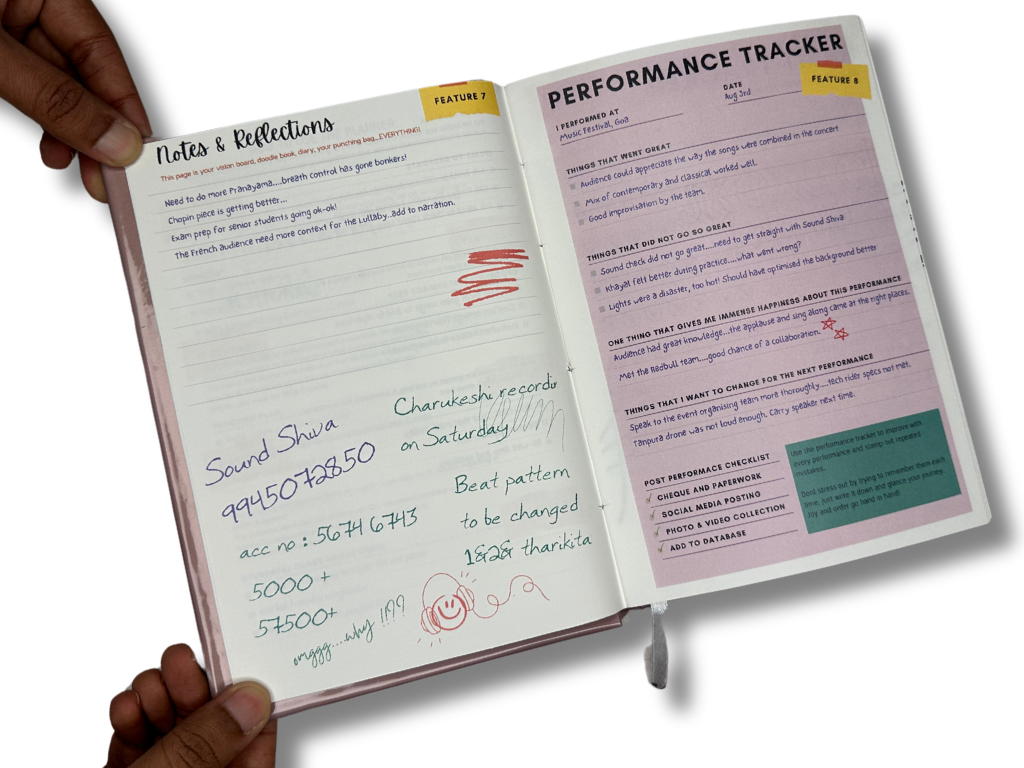 FEATURE 7
Notes & Reflections
This page is your vision board, doodle book, diary, your punching bag...EVERYTHING!
Need to do more Pranayama....breath control has gone bonkers!
Chopin piece is getting better...
Exam prep for senior students going ok-ok!
The French audience need more context for the Lullaby..add to narration.
Sound Shiva
9945072850
acc no : 5674 6743
5000 +
57500+
omggg....why !!??
Charukeshi recordi
on Saturday
Beat pattern
to be changed
1&2& tharikita
PERFORMANCE TRACKER
FEATURE 8
I PERFORMED AT
Music Festival, Goa
DATE
Aug 3rd
THINGS THAT WENT GREAT
Audience could appreciate the way the songs were combined in the concert
Mix of contemporary and classical worked well.
Good improvisation by the team.
THINGS THAT DID NOT GO SO GREAT
Sound check did not go great....need to get straight with Sound Shiva
Khayal felt better during practice....what went wrong?
Lights were a disaster, too hot! Should have optimised the background better
ONE THING THAT GIVES ME IMMENSE HAPPINESS ABOUT THIS PERFORMANCE
Audience had great knowledge...the applause and sing along came at the right places.
Met the Redbull team....good chance of a collaboration.
THINGS THAT I WANT TO CHANGE FOR THE NEXT PERFORMANCE
Speak to the event organising team more thoroughly....tech rider specs not met.
Tanpura drone was not loud enough. Carry speaker next time.
POST PERFORMACE CHECKLIST
CHEQUE AND PAPERWORK
SOCIAL MEDIA POSTING
PHOTO & VIDEO COLLECTION
ADD TO DATABASE
Use the performance tracker to improve with
every performance and stamp out repeated
mistakes.
Dont stress out by trying to remember them each
time, just write it down and glance your journey.
Joy and order go hand in hand!